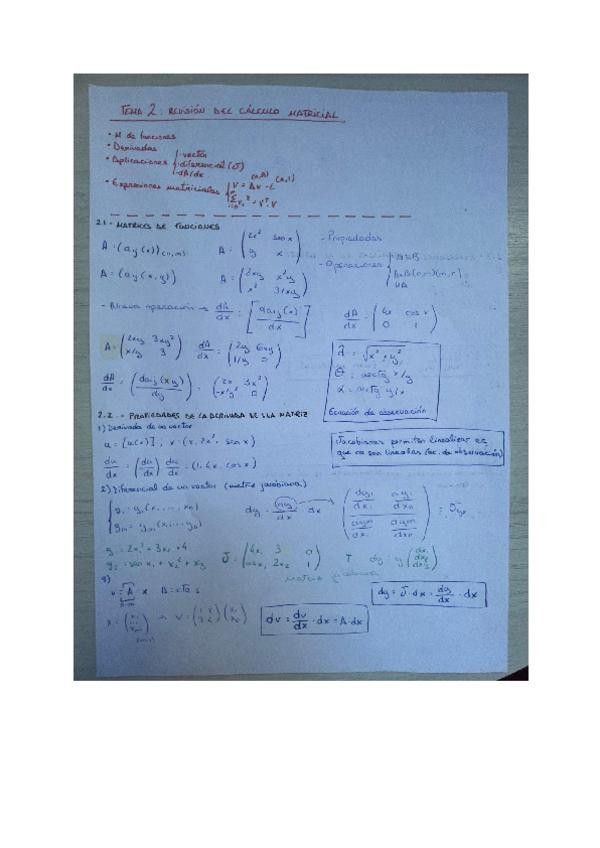 TEMA 2: REVISIÓN DEL CÁLCULO MATRICIAL
• M de funciones
• Derivadas
• Aplicaciones { · vector
· diferencial (J)
· dA/dx
• Expresiones matriciales { V = Ax - L
2.1 - MATRICES DE FUNCIONES
A = (aij(x))(n,m) A = (2x² sen x
y x) - Propiedades
A = (aij(x,y)) A = (2xy x²y
x² 3+xy) - Operaciones { A±B
A×B (n,m)(m,r)
- Nueva operación → dA/dx = [daij(x)/dx] dA/dx = (4x cos x
0 1)
A = (2xy 3xy²
x/y 3) dA/dx = (2y 6xy
1/y 0) d = √x² + y²
θ = arctg x/y
α = arctg y/x
dA/dx = (daij(xy)/dy) = (2x 3x²
-x/y² 0) Ecuación de observación
2.2. - PROPIEDADES DE LA DERIVADA DE UNA MATRIZ
1) Derivada de un vector
u = [u(x)] , v = (x, 2x², sen x) Jacobianas permiten linealizar ec
que no son lineales (ec. de observación)
du/dx = (du/dx) du/dx = (1, 4x, cos x)
2) Diferencial de un vector (matriz jacobiana)
{ y₁ = y₁(x₁...xn)
ym = ym(x₁...xn)
dy = dy/dx dx (dy₁/dx₁ dy₁/dxn
dym/dx₁ dym/dxn) = Jyx
y₁ = 2x₁² + 3x₂ + 4
y₂ = sen x₁ + x₂² + x₃ J = (4x₁ 3 0
cos x₁ 2x₂ 1)
matriz jacobiana
3) dy = J · dx = dy/dx · dx
v = A · x A = cte
dv = dv/dx · dx = A · dx